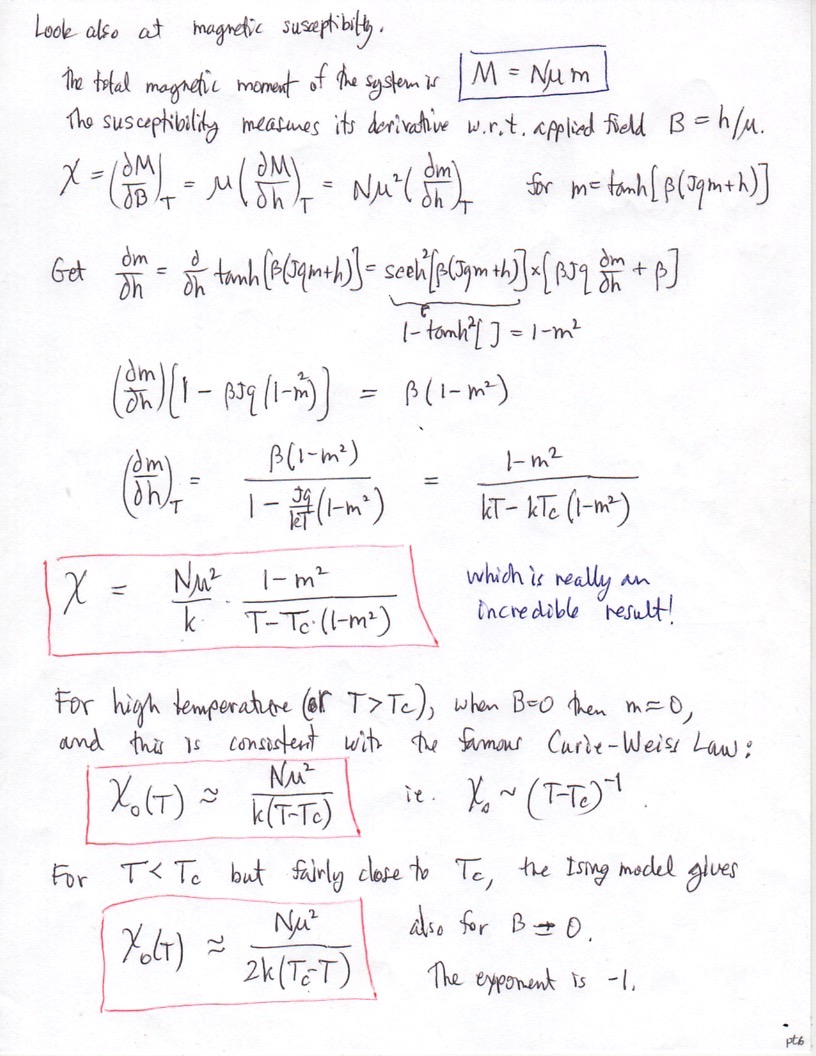 Look also at magnetic susceptibility.
The total magnetic moment of the system is M = Nμm
The susceptibility measures its derivative w.r.t. applied field B = h/μ.
χ = (∂M/∂B)_T = μ(∂M/∂h)_T = Nμ²(∂m/∂h)_T for m = tanh[β(Jqm+h)]
Get ∂m/∂h = ∂/∂h tanh[β(Jqm+h)] = sech²[β(Jqm+h)] × [βJq ∂m/∂h + β]
1 - tanh²[ ] = 1-m²
(∂m/∂h)[1 - βJq(1-m²)] = β(1-m²)
(∂m/∂h)_T = β(1-m²) / (1 - Jq/kT (1-m²)) = (1-m²) / (kT - kTc(1-m²))
χ = Nμ²/k · (1-m²) / (T-Tc·(1-m²)) which is really an
incredible result!
For high temperature (or T>Tc), when B=0 then m≈0,
and this is consistent with the famous Curie-Weiss Law:
χ₀(T) ≈ Nμ² / k(T-Tc) ie. χ₀ ~ (T-Tc)⁻¹.
For T<Tc but fairly close to Tc, the Ising model gives
χ₀(T) ≈ Nμ² / 2k(Tc-T) also for B = 0.
The exponent is -1.
pt6